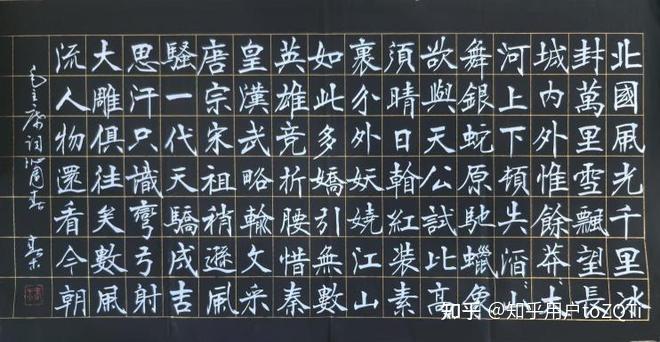 北國風光千里冰
封萬里雪飄望長
城內外惟餘莽〻大
河上下頓失滔〻山
舞銀蛇原馳蠟象
欲與天公試比高
須晴日翰紅裝素
裹分外妖嬈江山
如此多嬌引無數
英雄竞折腰惜秦
皇漢武略輸文采
唐宗宋祖稍遜風
騷一代天驕成吉
思汗只識彎弓射
大雕俱往矣數風
流人物還看今朝
毛主席詞沁園春
知乎 @知乎用户toZQTi